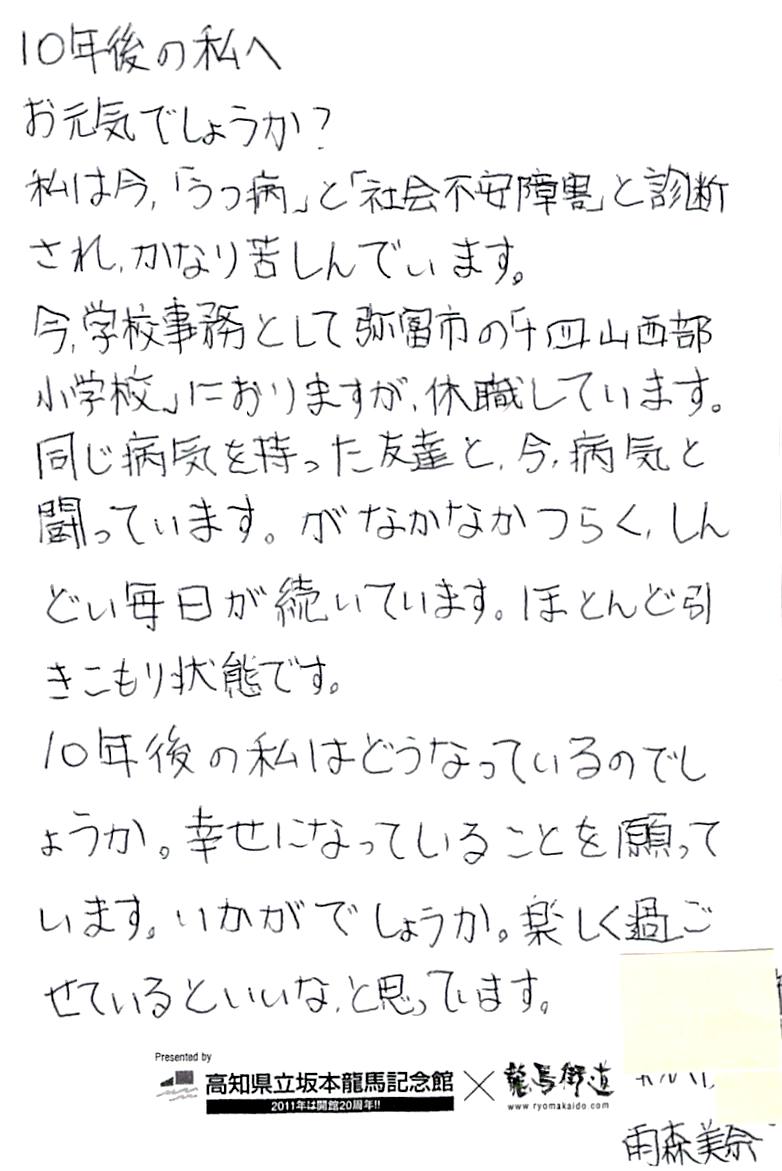 10年後の私へ
お元気でしょうか？
私は今，「うつ病」と「社会不安障害」と診断
され，かなり苦しんでいます。
今，学校事務として弥富市の「十四山西部
小学校」におりますが，休職しています。
同じ病気を持った友達と，今，病気と
闘っています。がなかなかつらく，しん
どい毎日が続いています。ほとんど引
きこもり状態です。
10年後の私はどうなっているのでし
ょうか。幸せになっていることを願って
います。いかがでしょうか。楽しく過ご
せているといいな，と思っています。
Presented by
高知県立坂本龍馬記念館
2011年は開館20周年!!
×
龍馬街道
www.ryomakaido.com
雨森美奈